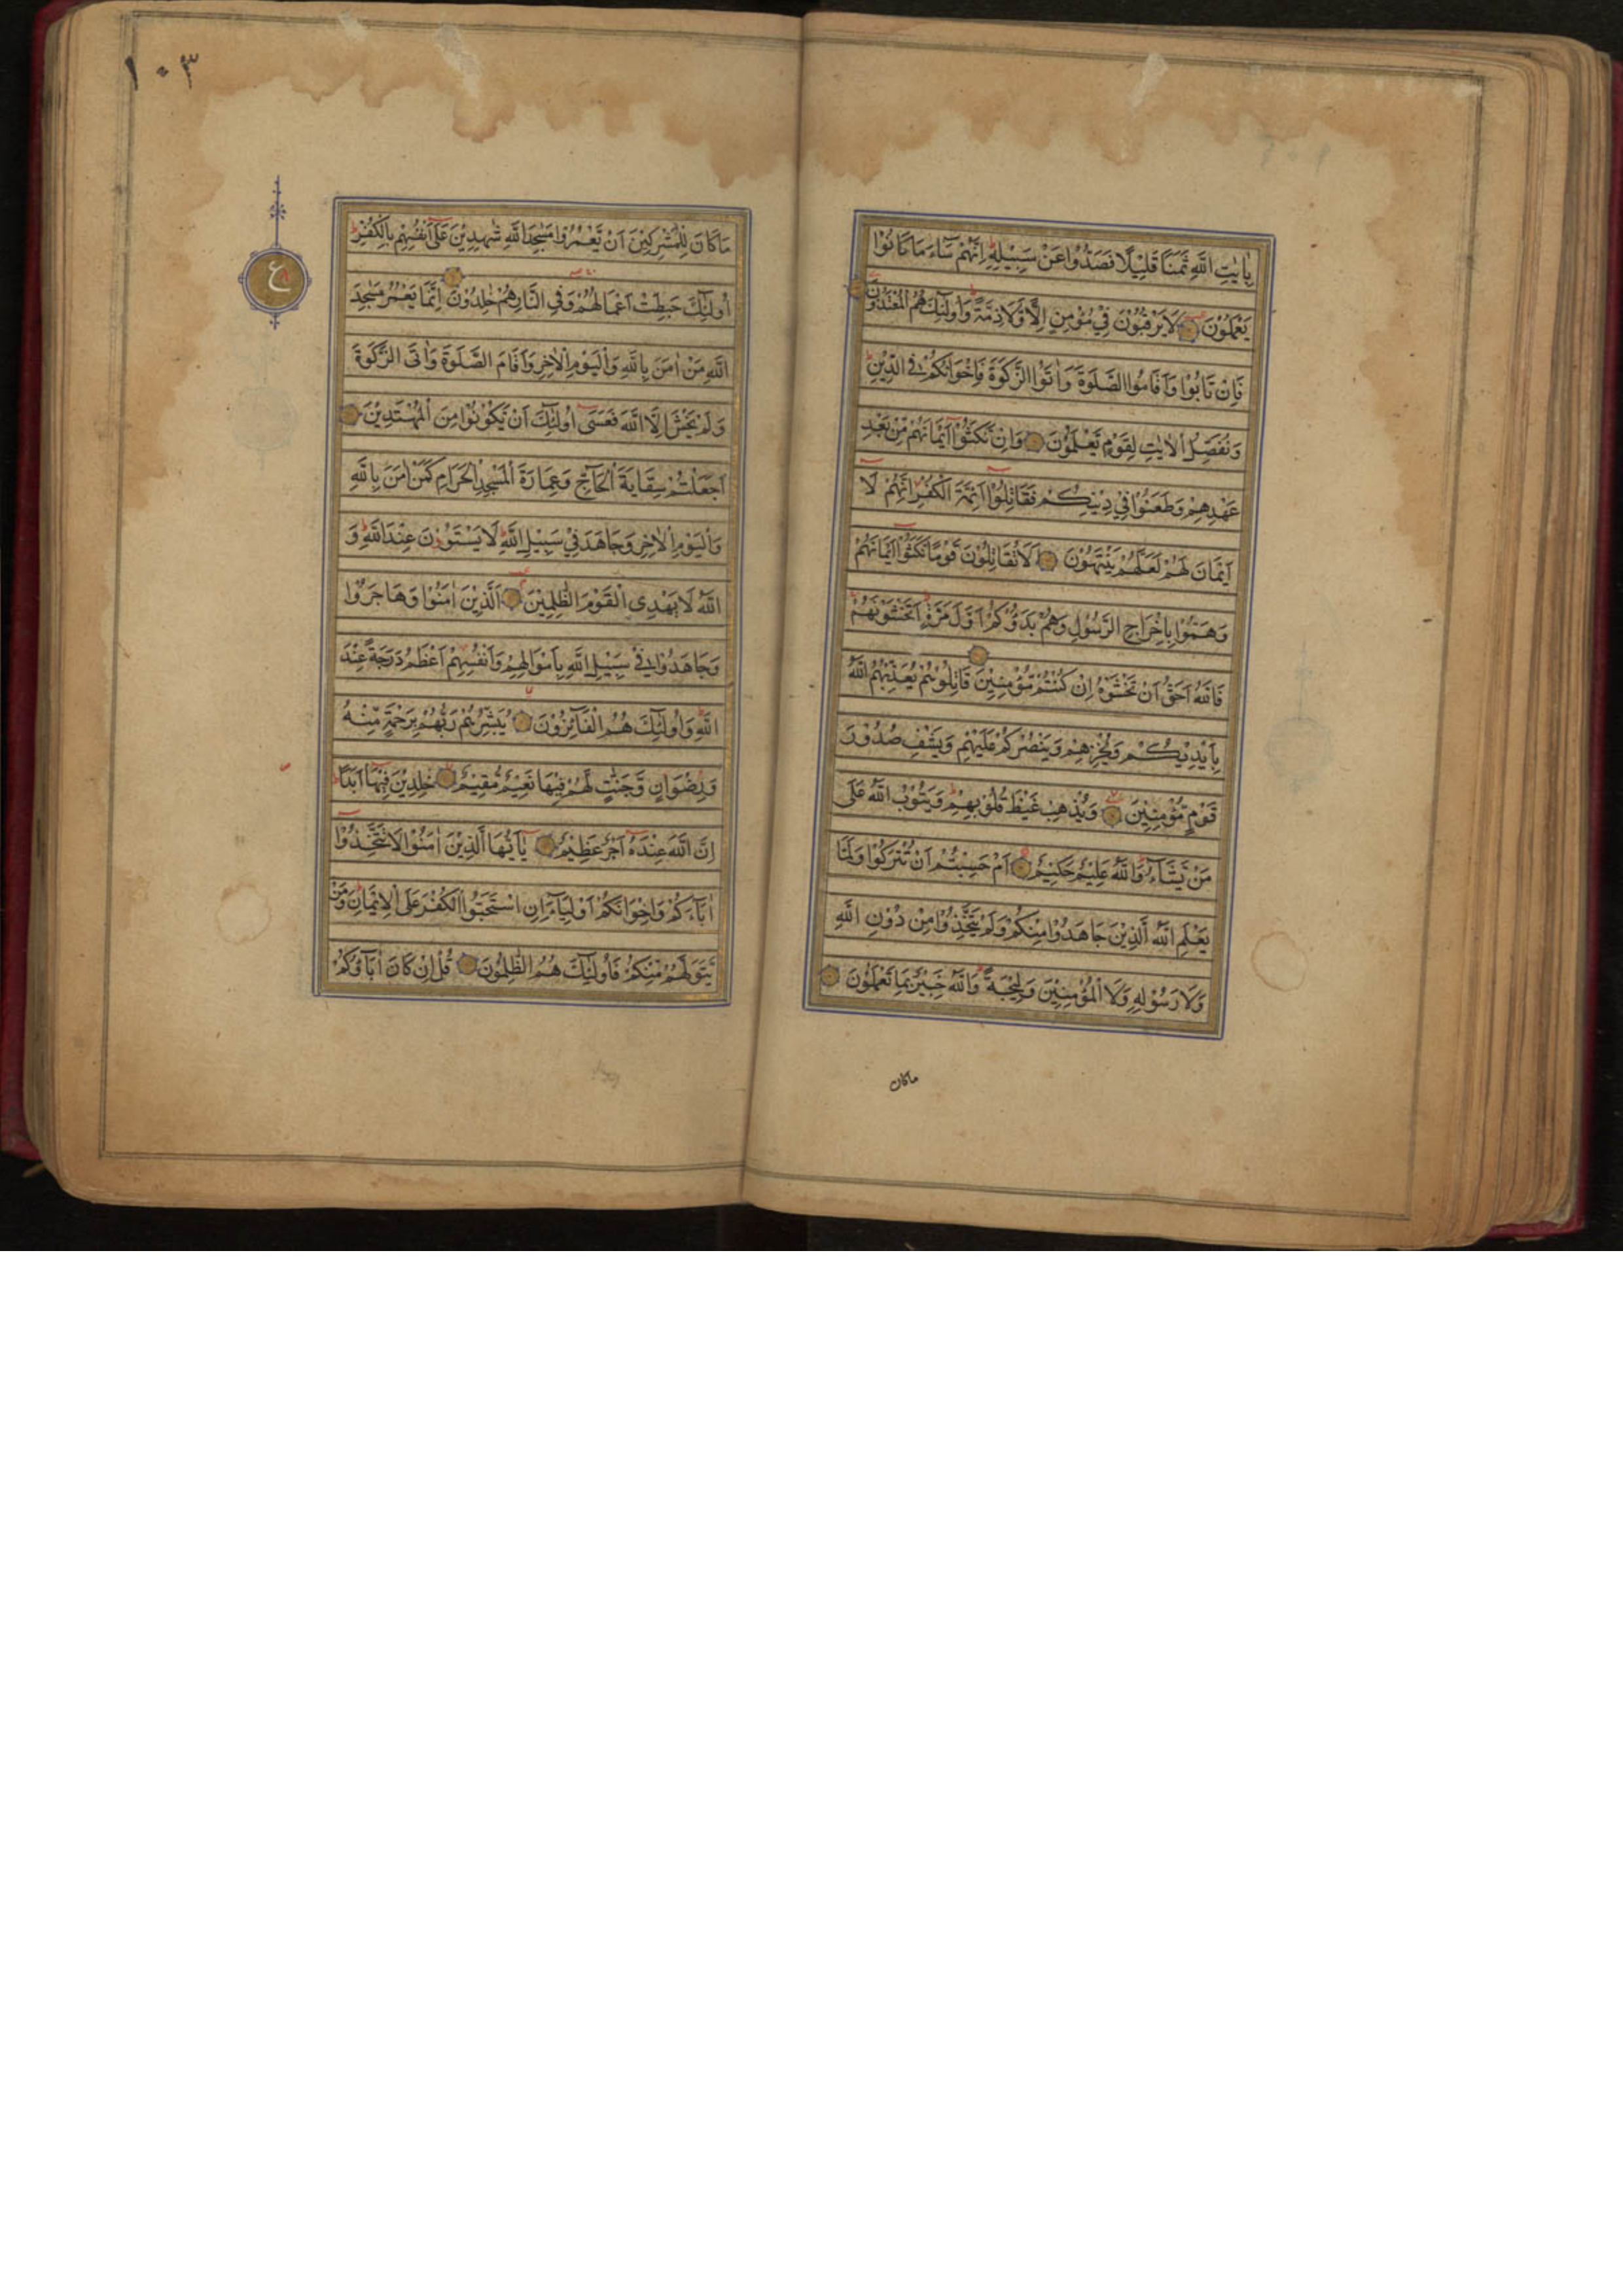 بِاٰيٰتِ اللّٰهِ ثَمَنًا قَلِيْلًا فَصَدُّوْا عَنْ سَبِيْلِهٖ اِنَّهُمْ سَآءَ مَا كَانُوْا
يَعْمَلُوْنَ لَا يَرْقُبُوْنَ فِيْ مُؤْمِنٍ اِلًّا وَّلَا ذِمَّةً وَاُولٰٓئِكَ هُمُ الْمُعْتَدُوْنَ
فَاِنْ تَابُوْا وَاَقَامُوا الصَّلٰوةَ وَاٰتَوُا الزَّكٰوةَ فَاِخْوَانُكُمْ فِي الدِّيْنِ
وَنُفَصِّلُ الْاٰيٰتِ لِقَوْمٍ يَّعْلَمُوْنَ وَاِنْ نَّكَثُوْٓا اَيْمَانَهُمْ مِّنْ بَعْدِ
عَهْدِهِمْ وَطَعَنُوْا فِيْ دِيْنِكُمْ فَقَاتِلُوْٓا اَئِمَّةَ الْكُفْرِ اِنَّهُمْ لَا
اَيْمَانَ لَهُمْ لَعَلَّهُمْ يَنْتَهُوْنَ اَلَا تُقَاتِلُوْنَ قَوْمًا نَّكَثُوْٓا اَيْمَانَهُمْ
وَهَمُّوْا بِاِخْرَاجِ الرَّسُوْلِ وَهُمْ بَدَؤُكُمْ اَوَّلَ مَرَّةٍ اَتَخْشَوْنَهُمْ
فَاللّٰهُ اَحَقُّ اَنْ تَخْشَوْهُ اِنْ كُنْتُمْ مُّؤْمِنِيْنَ قَاتِلُوْهُمْ يُعَذِّبْهُمُ اللّٰهُ
بِاَيْدِيْكُمْ وَيُخْزِهِمْ وَيَنْصُرْكُمْ عَلَيْهِمْ وَيَشْفِ صُدُوْرَ
قَوْمٍ مُّؤْمِنِيْنَ وَيُذْهِبْ غَيْظَ قُلُوْبِهِمْ وَيَتُوْبُ اللّٰهُ عَلٰى
مَنْ يَّشَآءُ وَاللّٰهُ عَلِيْمٌ حَكِيْمٌ اَمْ حَسِبْتُمْ اَنْ تُتْرَكُوْا وَلَمَّا
يَعْلَمِ اللّٰهُ الَّذِيْنَ جَاهَدُوْا مِنْكُمْ وَلَمْ يَتَّخِذُوْا مِنْ دُوْنِ اللّٰهِ
وَلَا رَسُوْلِهٖ وَلَا الْمُؤْمِنِيْنَ وَلِيْجَةً وَاللّٰهُ خَبِيْرٌ بِمَا تَعْمَلُوْنَ
ماكان
١٠٣
ع
مَا كَانَ لِلْمُشْرِكِيْنَ اَنْ يَّعْمُرُوْا مَسٰجِدَ اللّٰهِ شٰهِدِيْنَ عَلٰٓى اَنْفُسِهِمْ بِالْكُفْرِ
اُولٰٓئِكَ حَبِطَتْ اَعْمَالُهُمْ وَفِي النَّارِ هُمْ خٰلِدُوْنَ اِنَّمَا يَعْمُرُ مَسٰجِدَ
اللّٰهِ مَنْ اٰمَنَ بِاللّٰهِ وَالْيَوْمِ الْاٰخِرِ وَاَقَامَ الصَّلٰوةَ وَاٰتَى الزَّكٰوةَ
وَلَمْ يَخْشَ اِلَّا اللّٰهَ فَعَسٰٓى اُولٰٓئِكَ اَنْ يَّكُوْنُوْا مِنَ الْمُهْتَدِيْنَ
اَجَعَلْتُمْ سِقَايَةَ الْحَآجِّ وَعِمَارَةَ الْمَسْجِدِ الْحَرَامِ كَمَنْ اٰمَنَ بِاللّٰهِ
وَالْيَوْمِ الْاٰخِرِ وَجَاهَدَ فِيْ سَبِيْلِ اللّٰهِ لَا يَسْتَوُوْنَ عِنْدَ اللّٰهِ وَ
اللّٰهُ لَا يَهْدِي الْقَوْمَ الظّٰلِمِيْنَ اَلَّذِيْنَ اٰمَنُوْا وَهَاجَرُوْا
وَجَاهَدُوْا فِيْ سَبِيْلِ اللّٰهِ بِاَمْوَالِهِمْ وَاَنْفُسِهِمْ اَعْظَمُ دَرَجَةً عِنْدَ
اللّٰهِ وَاُولٰٓئِكَ هُمُ الْفَآئِزُوْنَ يُبَشِّرُهُمْ رَبُّهُمْ بِرَحْمَةٍ مِّنْهُ
وَرِضْوَانٍ وَّجَنّٰتٍ لَّهُمْ فِيْهَا نَعِيْمٌ مُّقِيْمٌ خٰلِدِيْنَ فِيْهَآ اَبَدًا
اِنَّ اللّٰهَ عِنْدَهٗٓ اَجْرٌ عَظِيْمٌ يٰٓاَيُّهَا الَّذِيْنَ اٰمَنُوْا لَا تَتَّخِذُوْٓا
اٰبَآءَكُمْ وَاِخْوَانَكُمْ اَوْلِيَآءَ اِنِ اسْتَحَبُّوا الْكُفْرَ عَلَى الْاِيْمَانِ وَمَنْ
يَّتَوَلَّهُمْ مِّنْكُمْ فَاُولٰٓئِكَ هُمُ الظّٰلِمُوْنَ قُلْ اِنْ كَانَ اٰبَآؤُكُمْ